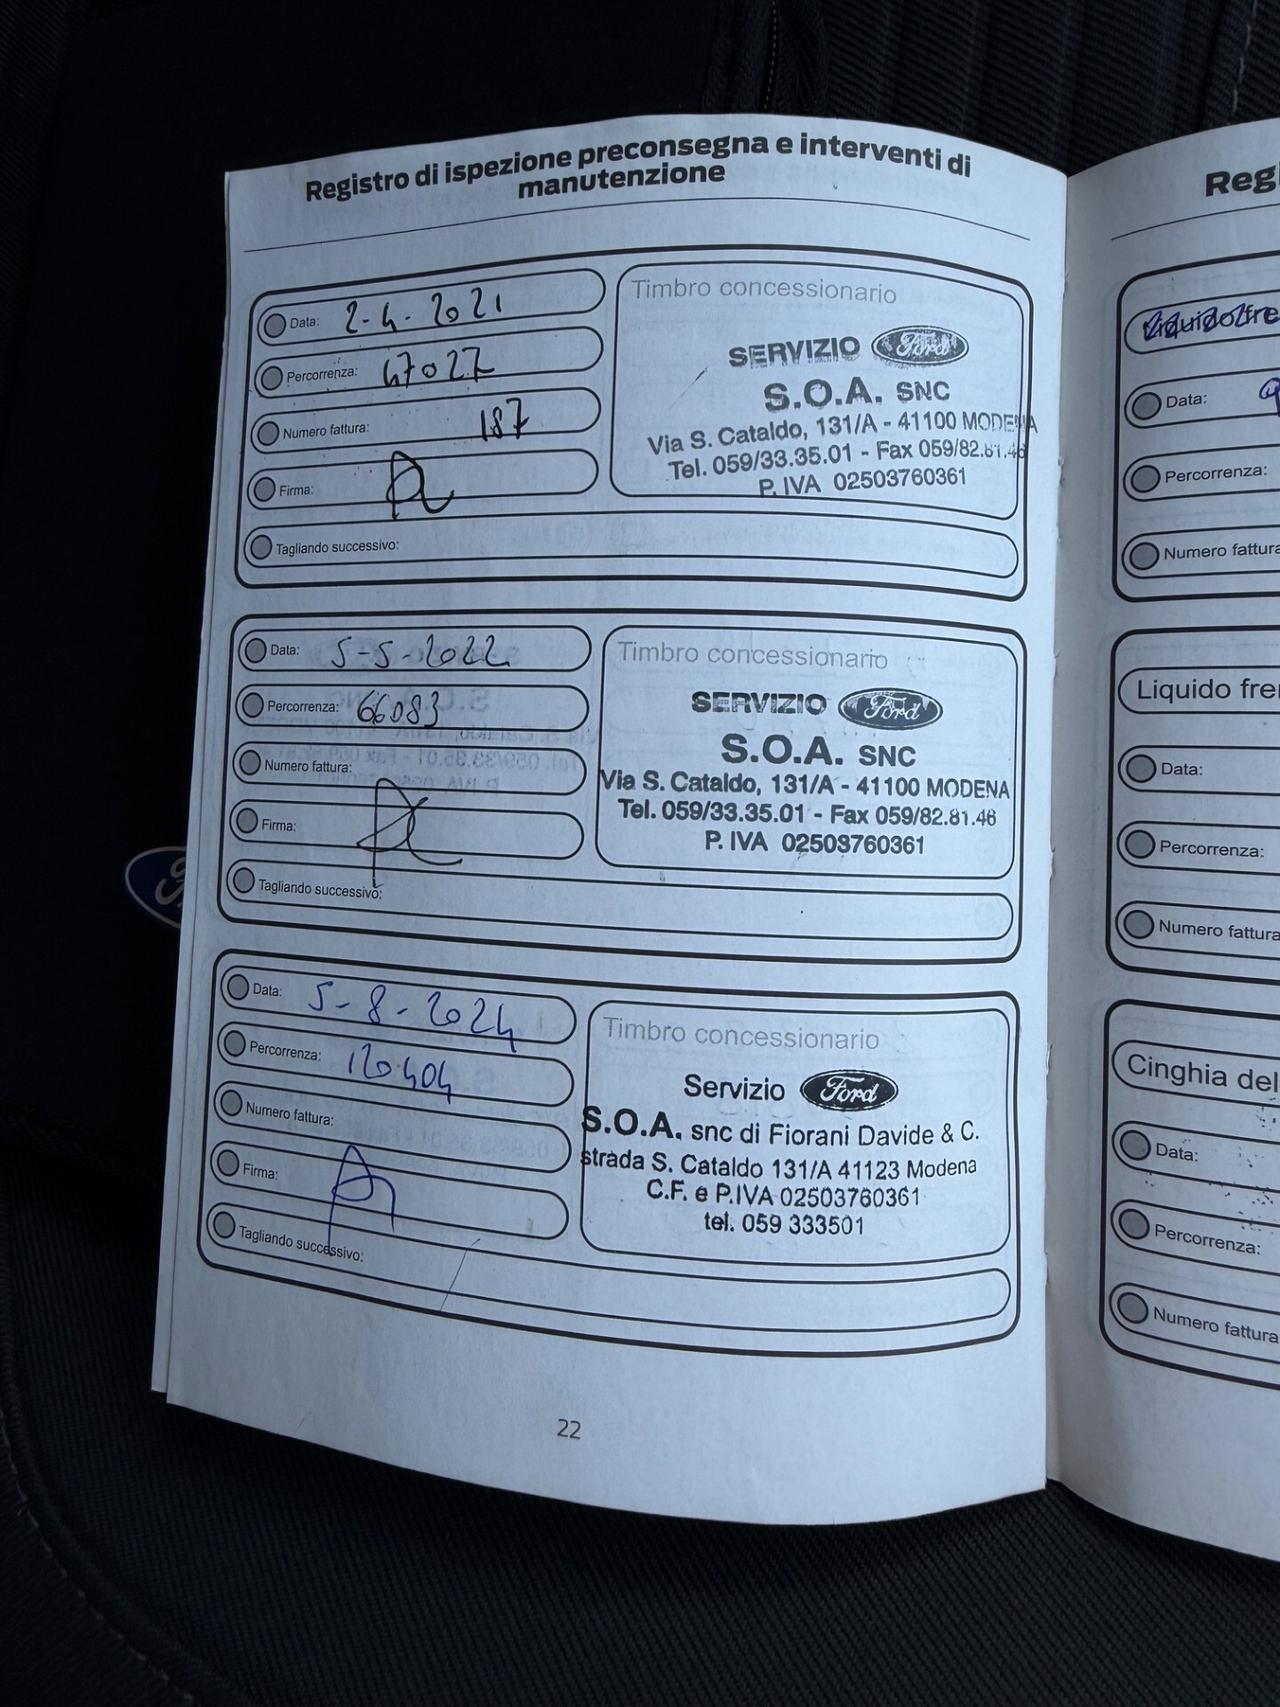 Registro di ispezione preconsegna e interventi di
manutenzione
Data: 2-4-2021
Percorrenza: 47027
Numero fattura: 187
Firma:
Tagliando successivo:
Timbro concessionario
SERVIZIO Ford
S.O.A. SNC
Via S. Cataldo, 131/A - 41100 MODENA
Tel. 059/33.35.01 - Fax 059/82.81.46
P. IVA 02503760361
Data: 5-5-2022
Percorrenza: 66083
Numero fattura:
Firma:
Tagliando successivo:
Timbro concessionario
SERVIZIO Ford
S.O.A. SNC
Via S. Cataldo, 131/A - 41100 MODENA
Tel. 059/33.35.01 - Fax 059/82.81.46
P. IVA 02503760361
Data: 5-8-2024
Percorrenza: 120.404
Numero fattura:
Firma:
Tagliando successivo:
Timbro concessionario
Servizio Ford
S.O.A. snc di Fiorani Davide & C.
strada S. Cataldo 131/A 41123 Modena
C.F. e P.IVA 02503760361
tel. 059 333501
22
Regi
Data:
Percorrenza:
Numero fattura
Liquido fre
Data:
Percorrenza:
Numero fattura
Cinghia del
Data:
Percorrenza:
Numero fattura